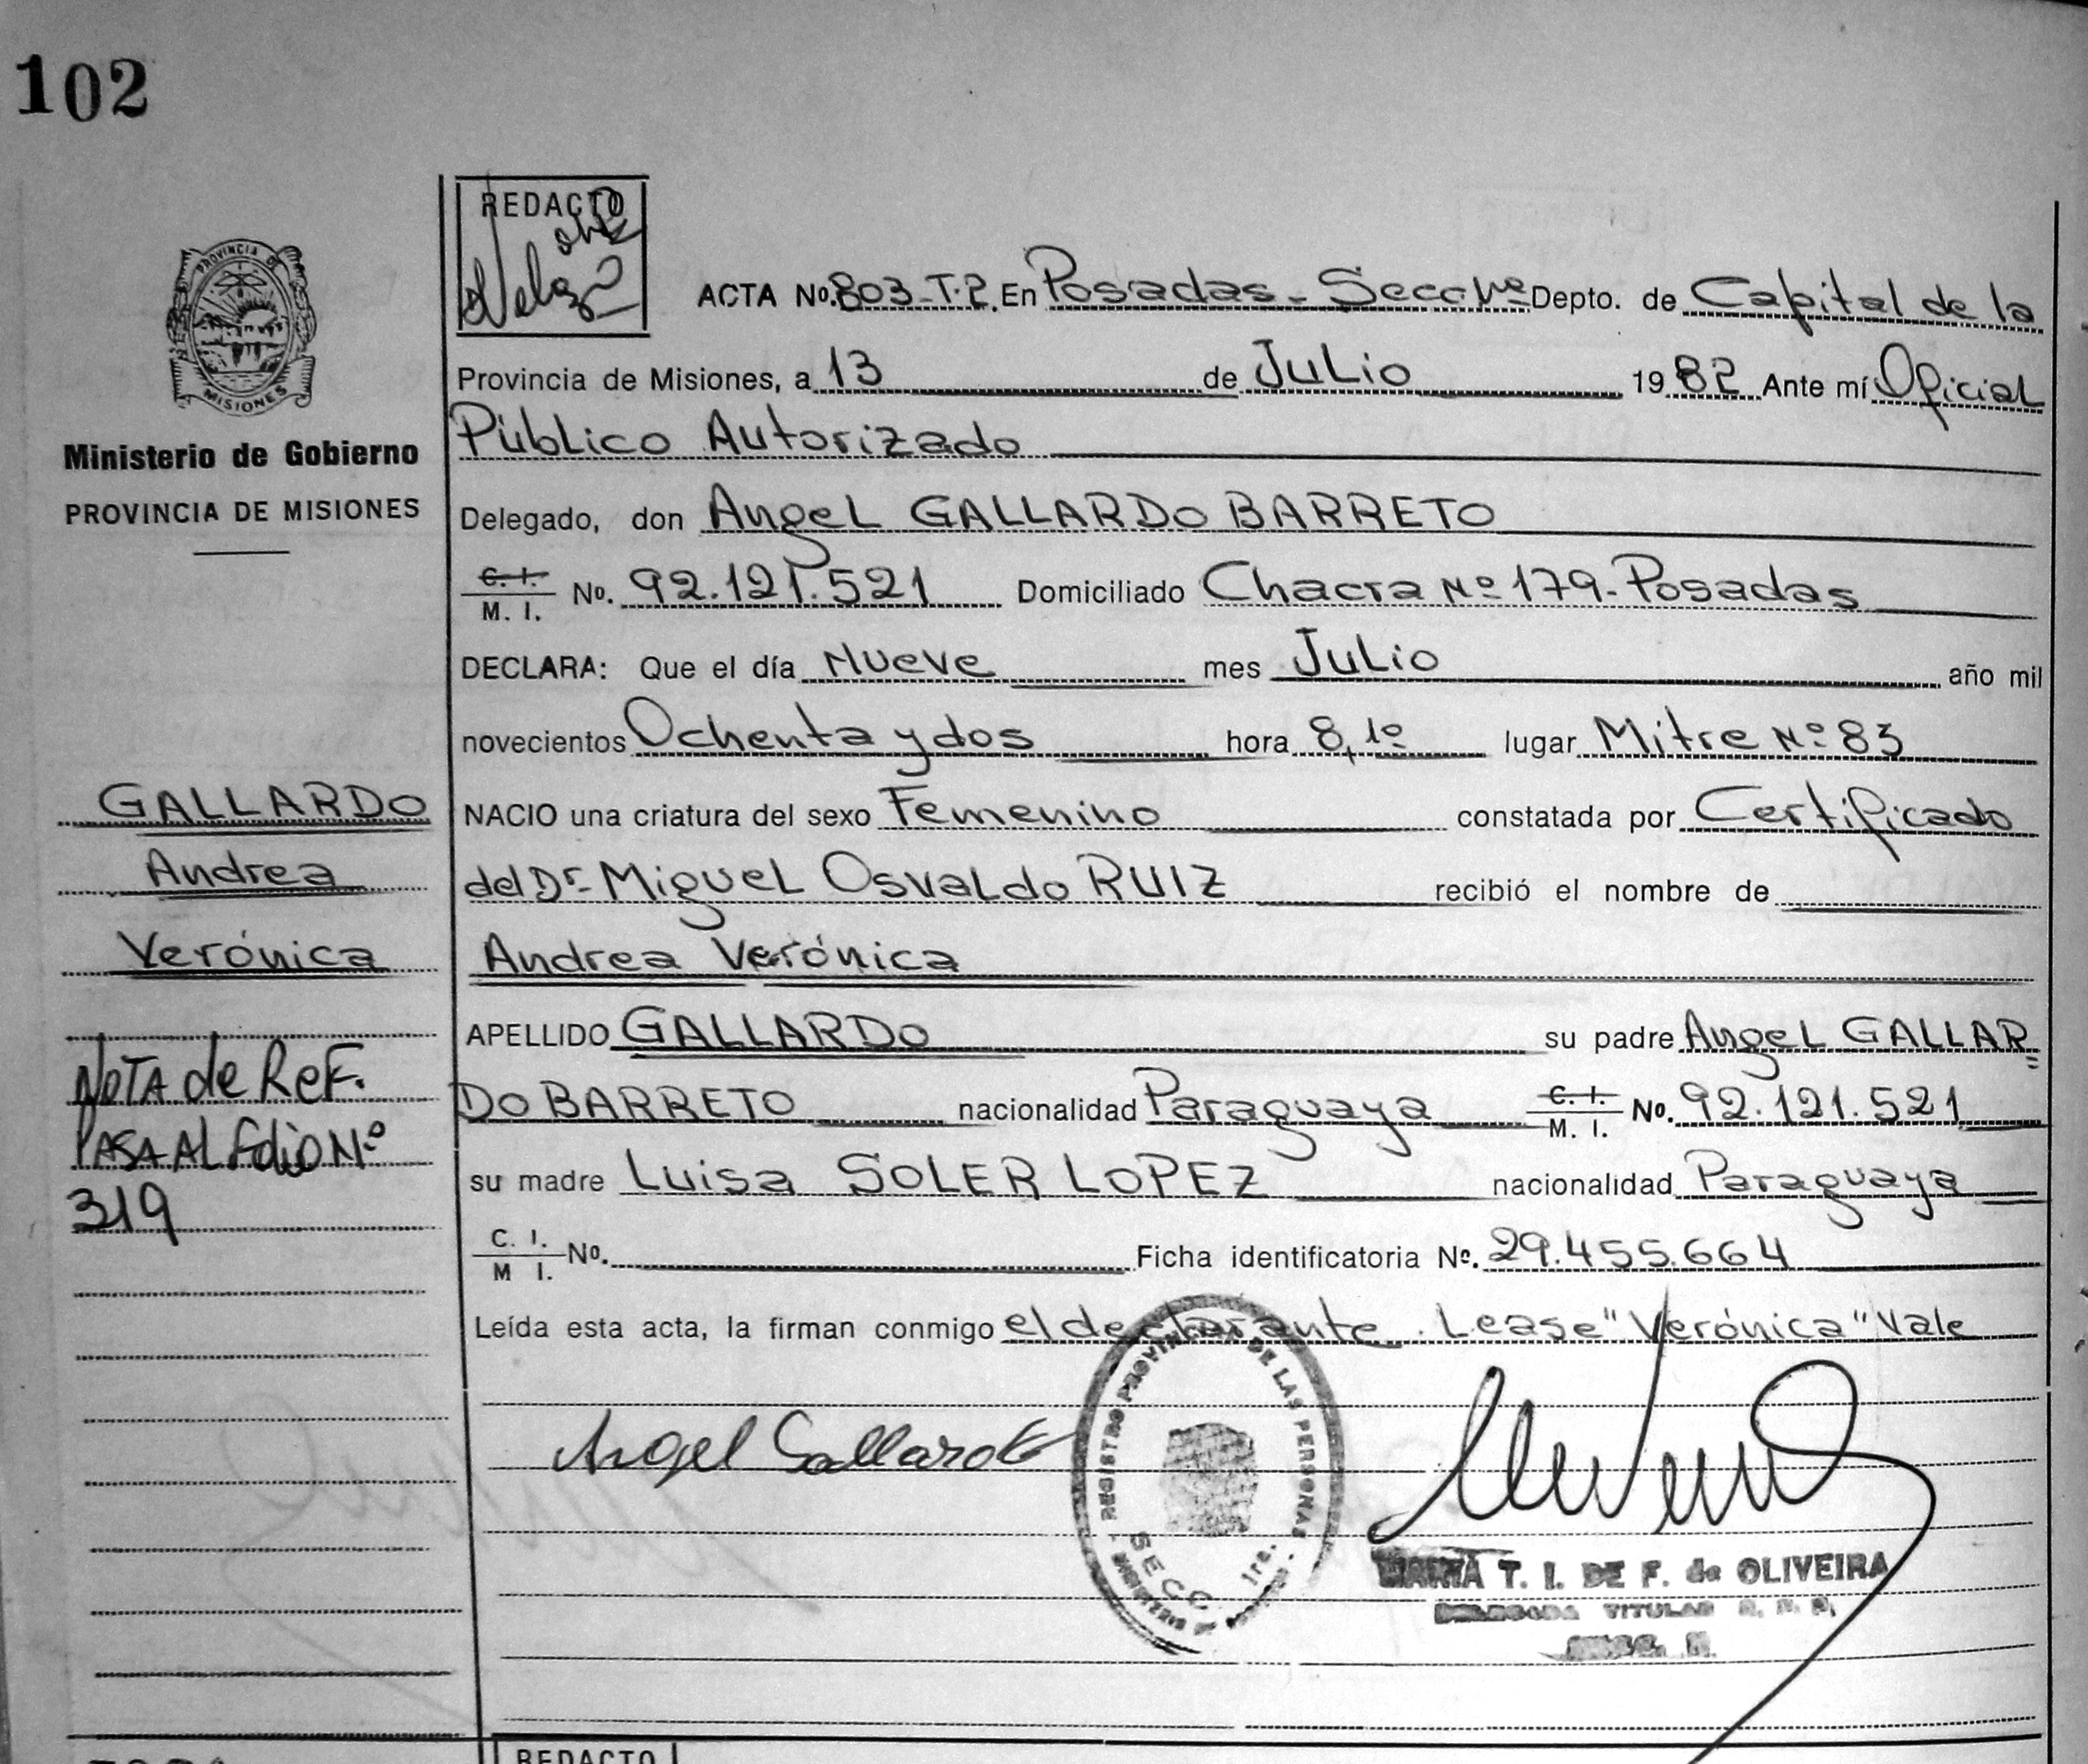 102
REDACTO
PROVINCIA DE
MISIONES
Ministerio de Gobierno
PROVINCIA DE MISIONES
ACTA No. 803-T.2. En Posadas - Secc. 1ª Depto. de Capital de la
Provincia de Misiones, a 13 de Julio 1982 Ante mí Oficial
Público Autorizado
Delegado, don Angel GALLARDO BARRETO
C. I. / M. I. No. 92.121.521 Domiciliado Chacra Nº 179-Posadas
DECLARA: Que el día Nueve mes Julio año mil
novecientos Ochenta y dos hora 8,10 lugar Mitre Nº 83
GALLARDO
Andrea
Verónica
NACIO una criatura del sexo Femenino constatada por Certificado
del Dr. Miguel Osvaldo RUIZ recibió el nombre de
Andrea Verónica
APELLIDO GALLARDO su padre Angel GALLAR=
DO BARRETO nacionalidad Paraguaya C. I. / M. I. No. 92.121.521
su madre Luisa SOLER LOPEZ nacionalidad Paraguaya
C. I. / M I. No. Ficha identificatoria No. 29.455.664
NOTA de REF.
PASA AL Folio Nº
319
Leída esta acta, la firman conmigo el declarante. Lease "Verónica" Vale
Angel Gallardo
REGISTRO PROVINCIAL DE LAS PERSONAS
SECC. 1ra.
MARIA T. I. DE F. de OLIVEIRA
DELEGADA TITULAR R. P. P.
REDACTO